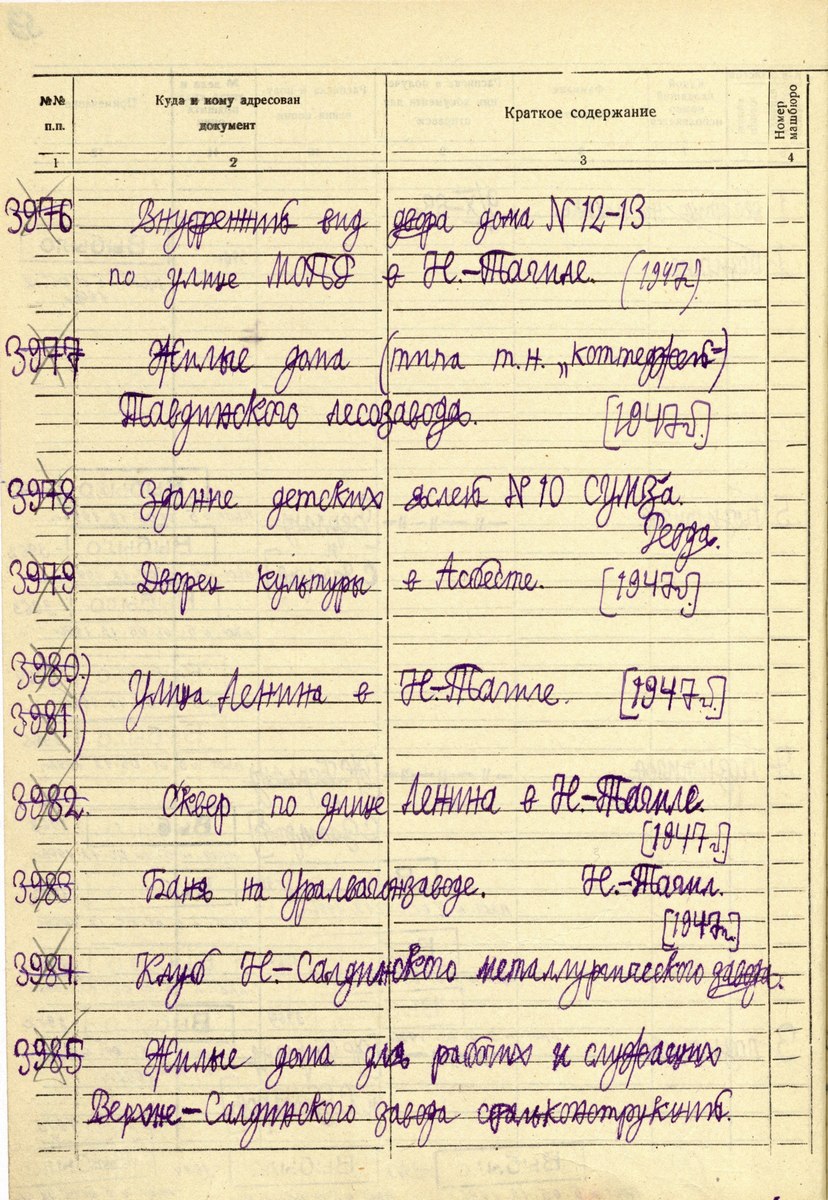 №№ п.п.
Куда и кому адресован документ
Краткое содержание
Номер машбюро
1 2 3 4
3976 Внутренний вид двора дома N 12-13
по улице МОПР в Н.-Тагиле. (1947г.)
3977 Жилые дома (типа т.н. „коттеджей")
Тавдинского лесозавода. [1947г.]
3978 Здание детских яслей N 10 СУМЗа.
Ревда.
3979 Дворец культуры в Асбесте. [1947г.]
3980)
Улица Ленина в Н-Тагиле. [1947г.]
3981)
3982. Сквер по улице Ленина в Н.-Тагиле.
[1947г.]
3983 Баня на Уралвагонзаводе. Н.-Тагил.
[1947г.]
3984. Клуб Н-Салдинского металлургического завода.
3985 Жилые дома для рабочих и служащих
Верхне-Салдинского завода стальконструкций.